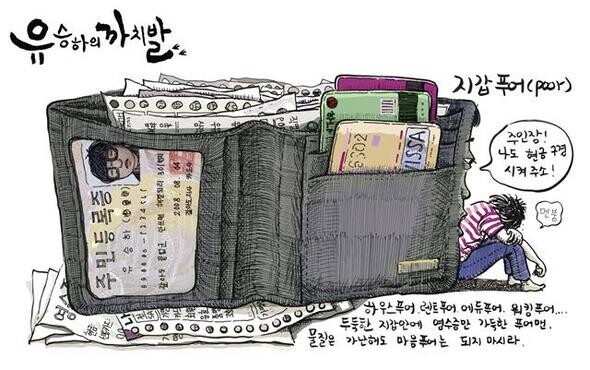 유승하의 까치발
지갑푸어(poor)
주인장!
나도 현금 구경
시켜 주소!
멘붕
VISSA
6302
주민등록증
유승하
2008. 08. 04
하우스푸어. 렌트푸어. 에듀푸어. 워킹푸어....
두둑한 지갑안에 영수증만 가득한 푸어맨.
물질은 가난해도 마음푸어는 되지 마시라.